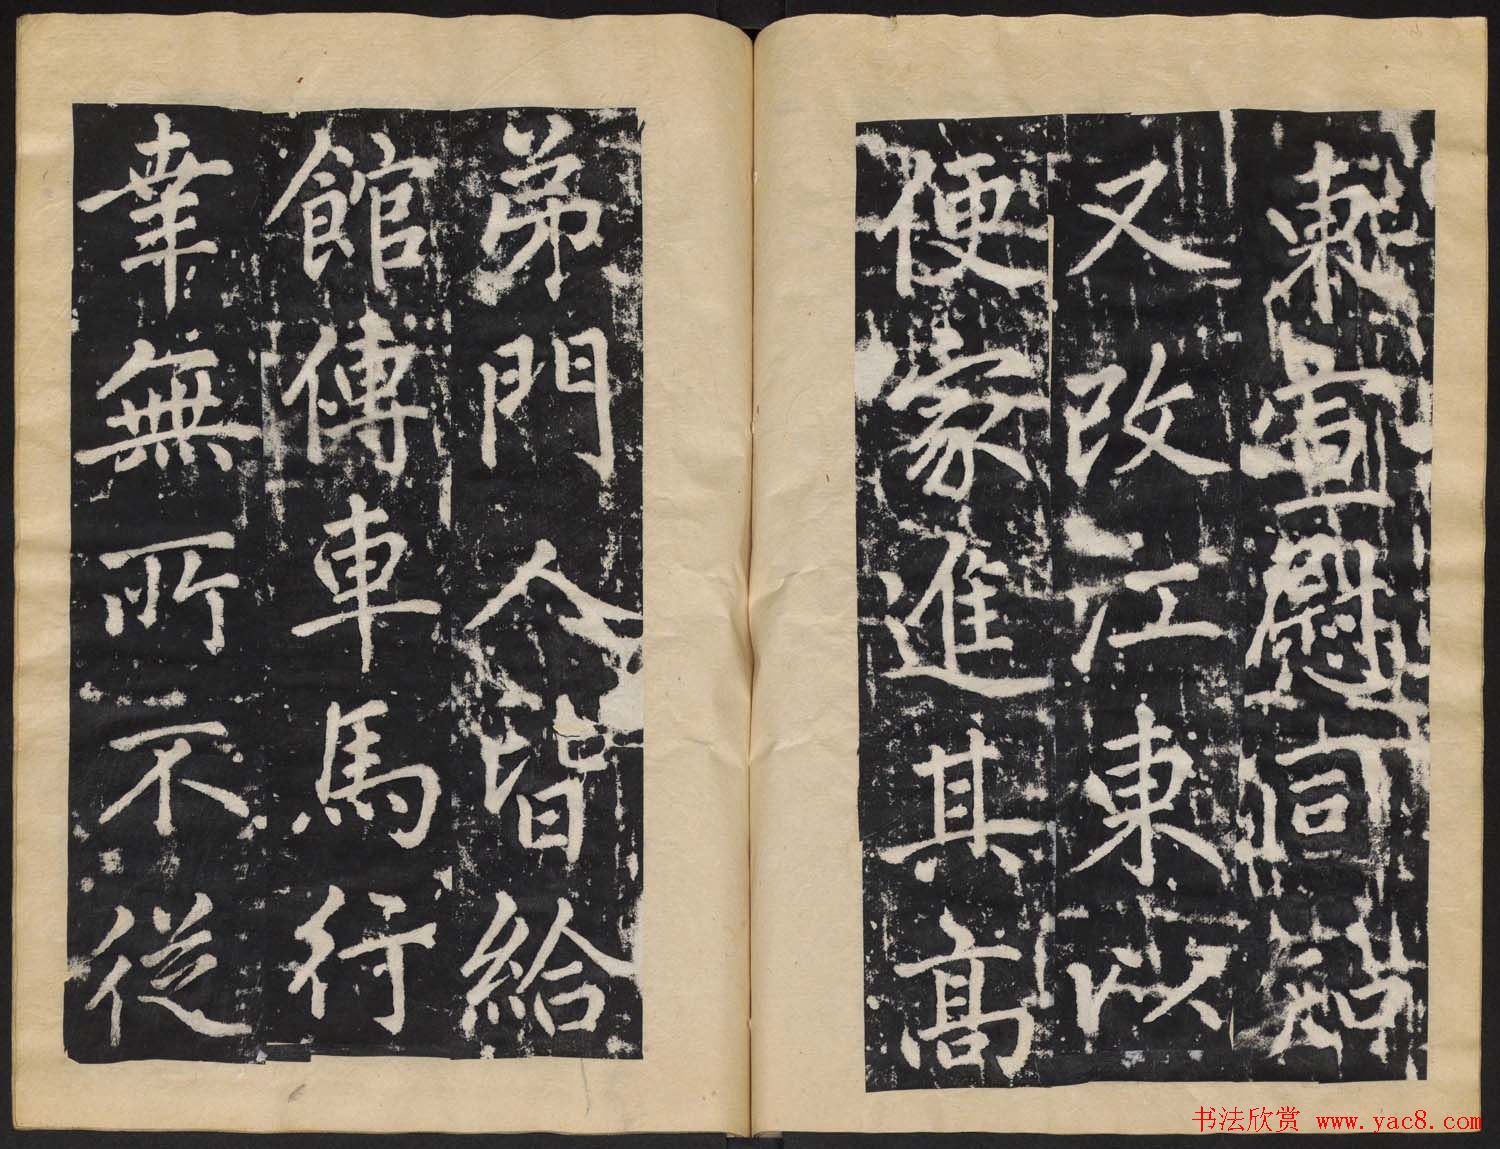 東宣慰司
又改江東以
便家進其高
弟門人皆給
館傳車馬行
幸無所不從
书法欣赏 www.yac8.com